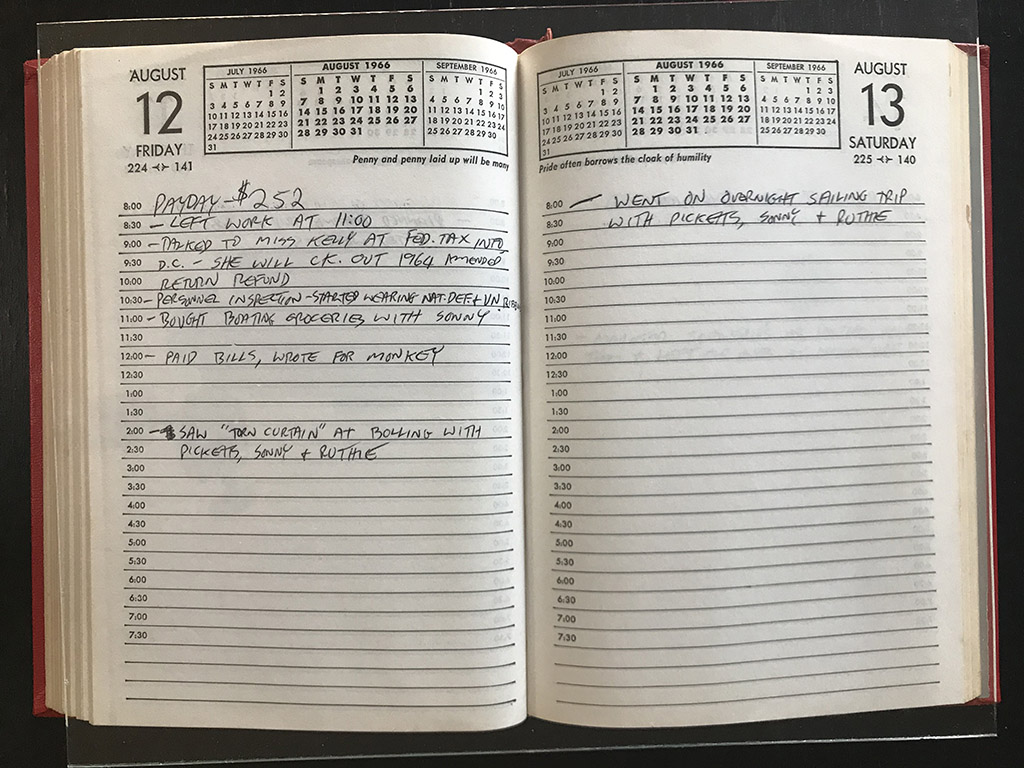 AUGUST
12
FRIDAY
224 141
JULY 1966
S M T W T F S
1 2
3 4 5 6 7 8 9
10 11 12 13 14 15 16
17 18 19 20 21 22 23
24 25 26 27 28 29 30
31
AUGUST 1966
S M T W T F S
1 2 3 4 5 6
7 8 9 10 11 12 13
14 15 16 17 18 19 20
21 22 23 24 25 26 27
28 29 30 31
SEPTEMBER 1966
S M T W T F S
1 2 3
4 5 6 7 8 9 10
11 12 13 14 15 16 17
18 19 20 21 22 23 24
25 26 27 28 29 30
Penny and penny laid up will be many
8:00 PAYDAY - $252
8:30 - LEFT WORK AT 11:00
9:00 - TALKED TO MISS KELLY AT FED. TAX INFO
9:30 D.C. - SHE WILL CK. OUT 1964 AMENDED
10:00 RETURN REFUND
10:30 - PERSONNEL INSPECTION - STARTED WEARING NAT. DEF. + VN.
11:00 - BOUGHT BOATING GROCERIES WITH SONNY
11:30
12:00 - PAID BILLS, WROTE FOR MONKEY
12:30
1:00
1:30
2:00 - SAW "TORN CURTAIN" AT BOLLING WITH
2:30 PICKETS, SONNY + RUTHIE
3:00
3:30
4:00
4:30
5:00
5:30
6:00
6:30
7:00
7:30
JULY 1966
S M T W T F S
1 2
3 4 5 6 7 8 9
10 11 12 13 14 15 16
17 18 19 20 21 22 23
24 25 26 27 28 29 30
31
AUGUST 1966
S M T W T F S
1 2 3 4 5 6
7 8 9 10 11 12 13
14 15 16 17 18 19 20
21 22 23 24 25 26 27
28 29 30 31
SEPTEMBER 1966
S M T W T F S
1 2 3
4 5 6 7 8 9 10
11 12 13 14 15 16 17
18 19 20 21 22 23 24
25 26 27 28 29 30
AUGUST
13
SATURDAY
225 140
Pride often borrows the cloak of humility
8:00 - WENT ON OVERNIGHT SAILING TRIP
8:30 WITH PICKETS, SONNY + RUTHIE
9:00
9:30
10:00
10:30
11:00
11:30
12:00
12:30
1:00
1:30
2:00
2:30
3:00
3:30
4:00
4:30
5:00
5:30
6:00
6:30
7:00
7:30